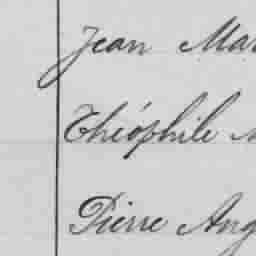 Jean Mar
Théophile
Pierre Ang